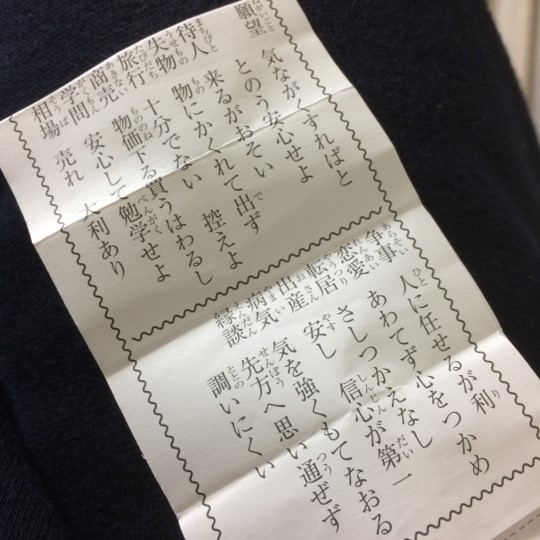 願望 気ながくすればと
とのう安心せよ
待人 来るがおそい
失物 物にかくれて出ず
旅行 十分でない 控えよ
商売 物価下る買うはわるし
学問 安心して勉学せよ
相場 売れ 大利あり
争事 人に任せるが利
恋愛 あわてず心をつかめ
転居 さしつかえなし
出産 安し 信心が第一
病気 気を強くもてなおる
縁談 先方へ思い通ぜず
調いにくい